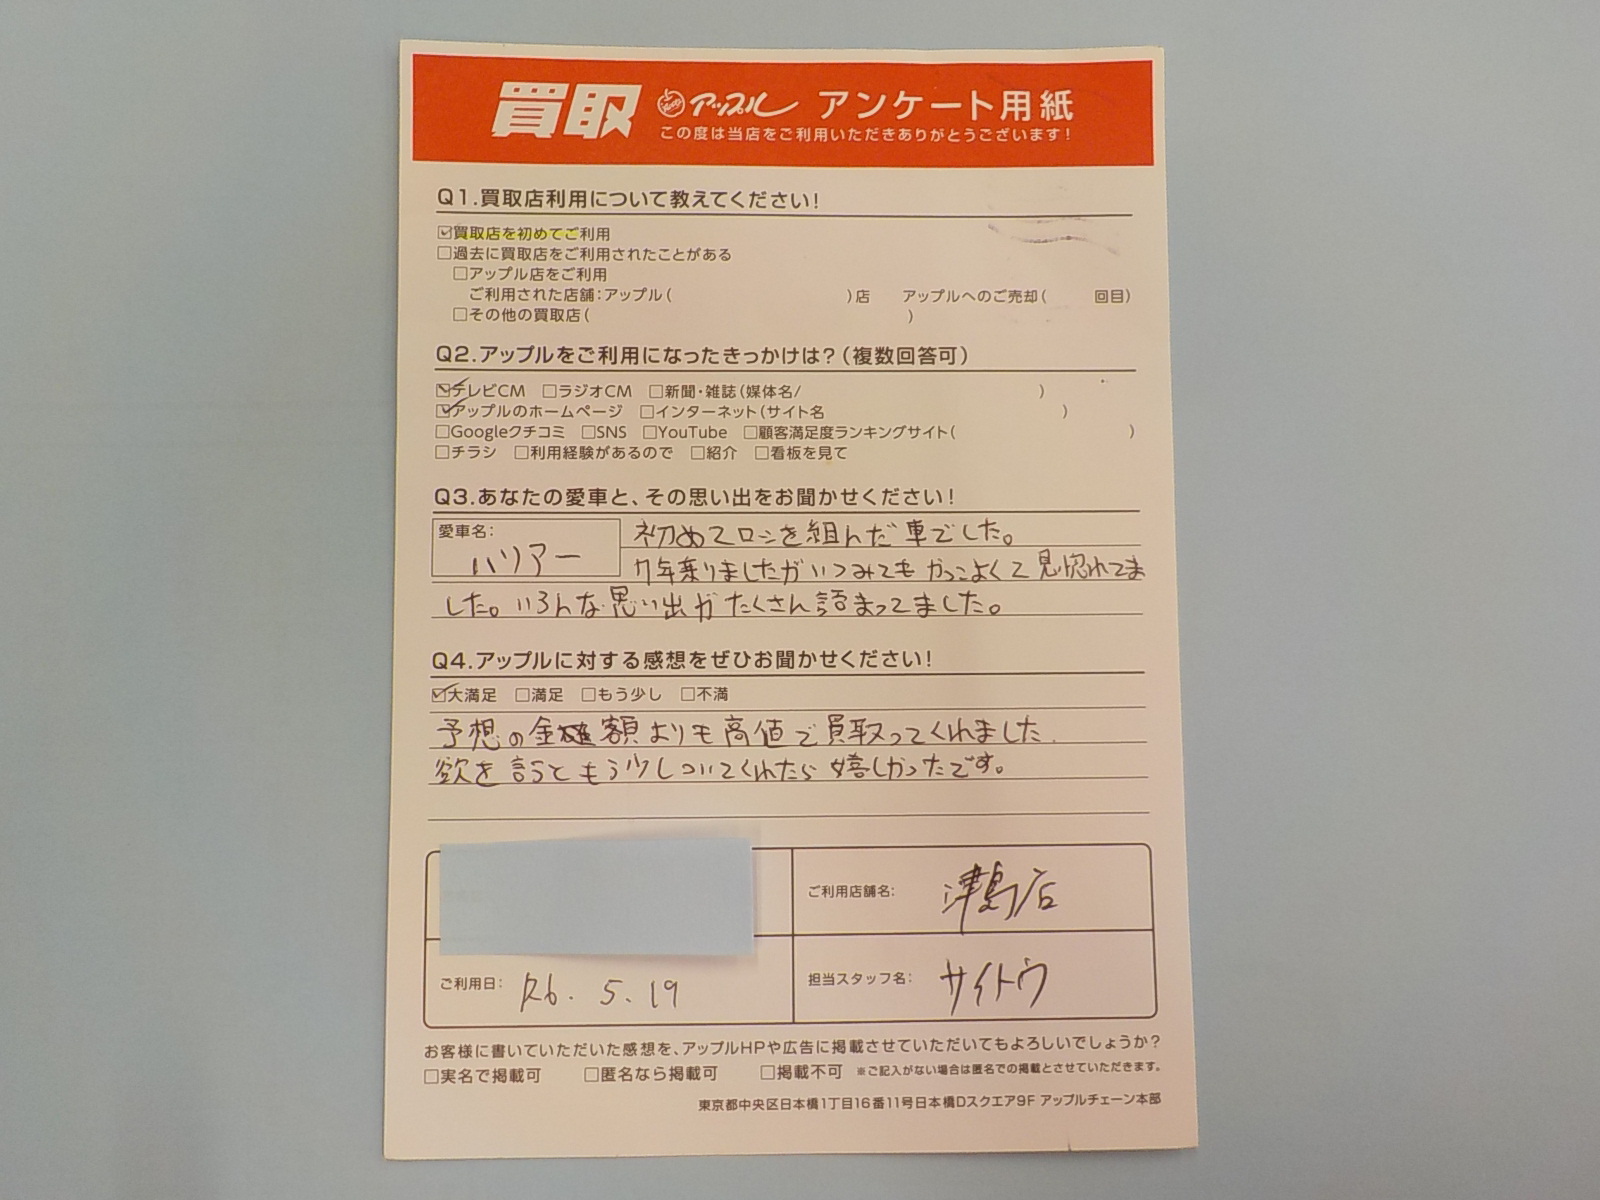 買取 アップル アンケート用紙
この度は当店をご利用いただきありがとうございます!
Q1.買取店利用について教えてください!
☑買取店を初めてご利用
□過去に買取店をご利用されたことがある
□アップル店をご利用
ご利用された店舗:アップル( )店 アップルへのご売却( 回目)
□その他の買取店( )
Q2.アップルをご利用になったきっかけは?(複数回答可)
☑テレビCM □ラジオCM □新聞・雑誌(媒体名/ )
☑アップルのホームページ □インターネット(サイト名 )
□Googleクチコミ □SNS □YouTube □顧客満足度ランキングサイト( )
□チラシ □利用経験があるので □紹介 □看板を見て
Q3.あなたの愛車と、その思い出をお聞かせください!
愛車名:
ハリアー
初めてローンを組んだ車でした。
7年乗りましたがいつみてもかっこよくて見惚れてま
した。いろんな思い出がたくさん詰まってました。
Q4.アップルに対する感想をぜひお聞かせください!
☑大満足 □満足 □もう少し □不満
予想の金額よりも高値で買取ってくれました.
欲を言うともう少しついてくれたら嬉しかったです。
ご利用店舗名: 津島店
ご利用日: R6. 5. 19
担当スタッフ名: サイトウ
お客様に書いていただいた感想を、アップルHPや広告に掲載させていただいてもよろしいでしょうか?
□実名で掲載可 □匿名なら掲載可 □掲載不可 ※ご記入がない場合は匿名での掲載とさせていただきます。
東京都中央区日本橋1丁目16番11号日本橋Dスクエア9F アップルチェーン本部